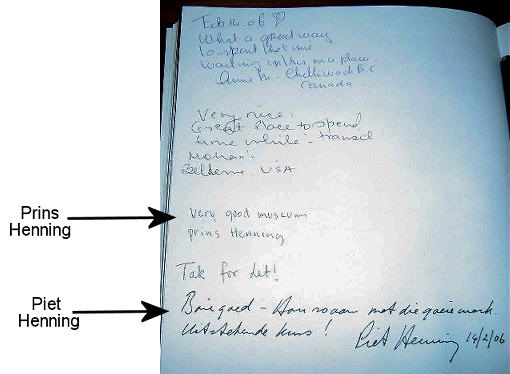 Feb 14. 06 ♡
What a great way
to spent
waiting in this nice place.
Anne M. Chilliwack B.C
Canada.
Very nice.
Great Place to spend
time while - transit
Mohan's
USA
Prins
Henning
Very good museum
prins Henning
Tak for det!
Piet
Henning
Baie goed - Hou so aan met die goeie werk.
Uitstekende kuns!
Piet Henning 14/2/06